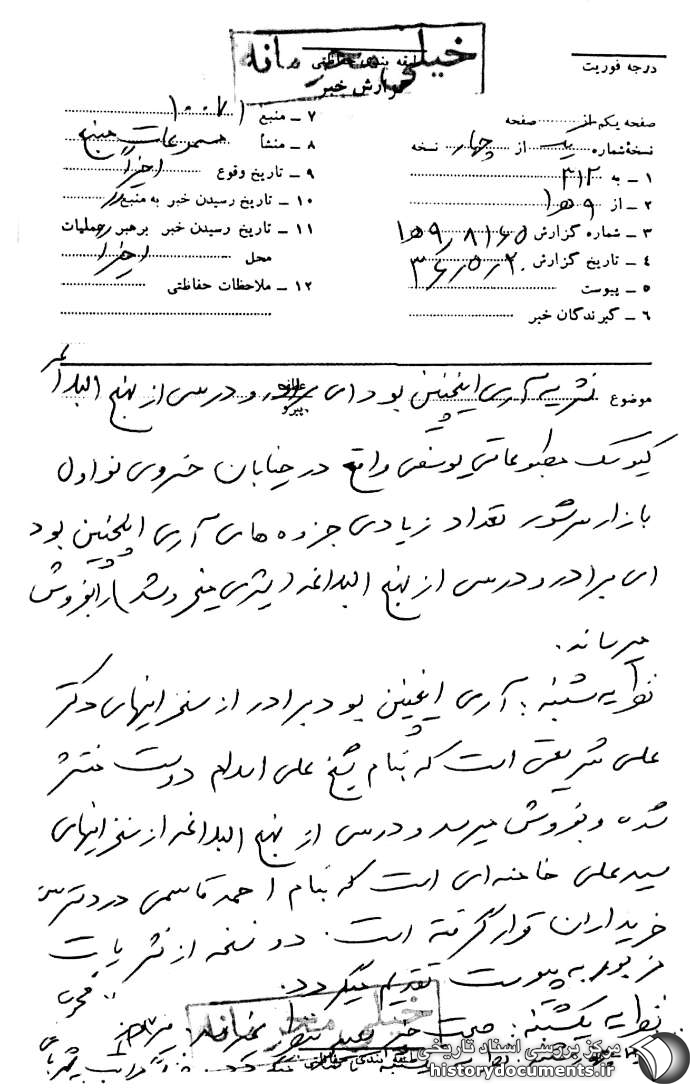 خیلی محرمانه
درجه فوریت
گزارش خبر
صفحه یکم از صفحه
نسخهٔ شماره یک از چهار نسخه
۱ ـ به ۳۱۲
۲ ـ از ۹ﻫ۱
۳ ـ شماره گزارش
۴ ـ تاریخ گزارش
۵ ـ پیوست
۶ ـ گیرندگان خبر
۷ ـ منبع ۱۰۰۷۱
۸ ـ منشأ مسموعات منبع
۹ ـ تاریخ وقوع اخیرا
۱۰ ـ تاریخ رسیدن خبر به منبع
۱۱ ـ تاریخ رسیدن خبر برهبر عملیات
محل اخیرا
۱۲ ـ ملاحظات حفاظتی
موضوع نشریه آری اینچنین بود ای برادر و درسی از نهج البلاغه
پیرو
کیوسک مطبوعاتی یوسفی واقع در خیابان خسروی نو اول
بازار سرشور تعداد زیادی جزوه های آری اینچنین بود
ای برادر و درسی از نهج البلاغه را بفروش
میرساند.
نظریه شنبه: آری اینچنین بود برادر از سخنرانیهای دکتر
علی شریعتی است که بنام شیخ علی اسلام دوست منتشر
شده و بفروش میرسد و درسی از نهج البلاغه از سخنرانیهای
سید علی خامنه ای است که بنام احمد قاسمی در دسترس
خریداران قرار گرفته است. دو نسخه از نشریات
مزبور به پیوست تقدیم میگردد.
نظریه یکشنبه: صحت خبر
خیلی محرمانه
طبقه بندی حفاظتی
مرکز بررسی اسناد تاریخی
historydocuments.ir